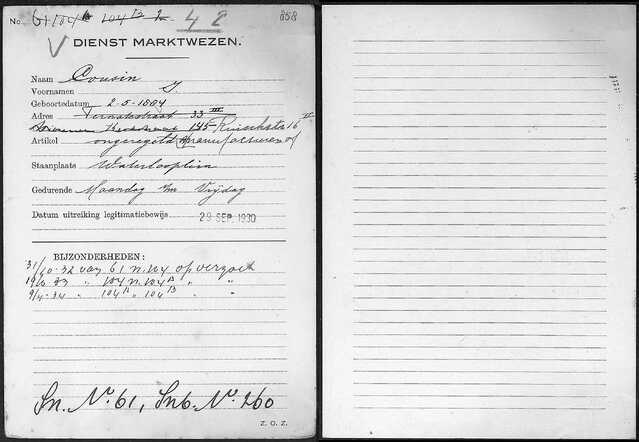 No. 61 104a 104B 2 42 858
V DIENST MARKTWEZEN.
Naam Cousin
Voornamen J
Geboortedatum 2-5-1894
Adres Ternatestraat 33 III
145 16 II
Artikel ongeregeld manufacturen
Staanplaats Waterlooplein
Gedurende Maandag t/m Vrijdag
Datum uitreiking legitimatiebewijs 29 SEP. 1930
BIJZONDERHEDEN:
31/10-32 van 61 n. 104 op verzoek
104 n. 104B " "
9/4-34 " 104B " "
Sn. No. 61, Snb. No. 260
Z. O. Z.